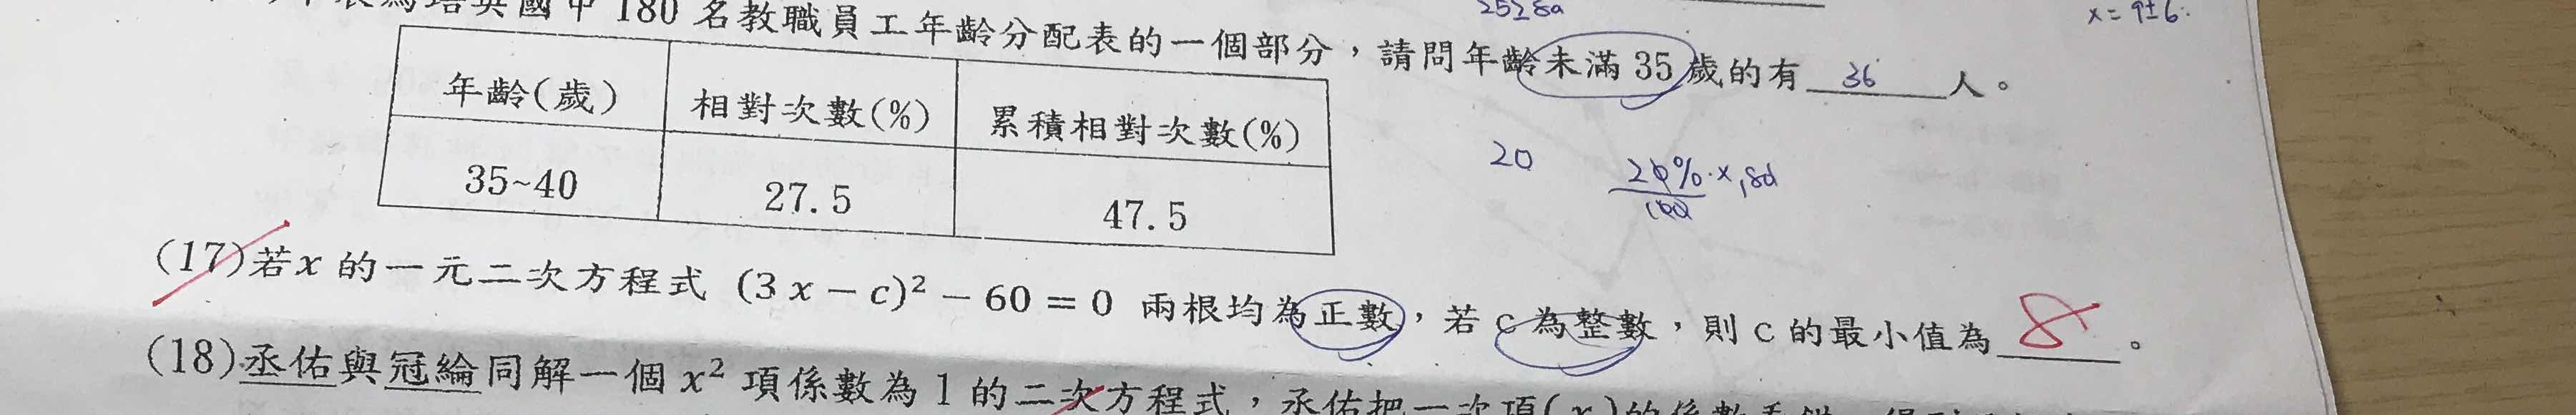 180 名教職員工年齡分配表的一個部分,請問年齡未滿 35 歲的有 36 人。
x = 9±6
年齡(歲) 相對次數(%) 累積相對次數(%)
35~40 27.5 47.5
20 20% × 180
100
(17)若x 的一元二次方程式 (3x − c)² − 60 = 0 兩根均為正數,若 c 為整數,則 c 的最小值為 8 。
(18)丞佑與冠綸同解一個 x² 項係數為 1 的二次方程式,丞佑把一次項(x)的係數看錯